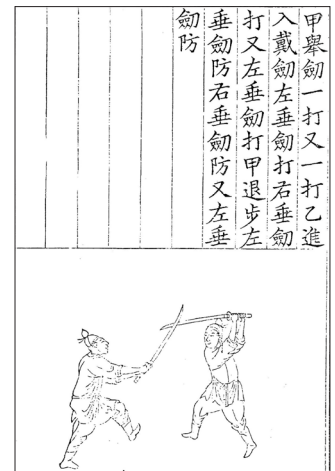 甲舉劒一打又一打乙進
入戴劒左垂劒打右垂劒
打又左垂劒打甲退步左
垂劒防右垂劒防又左垂
劒防